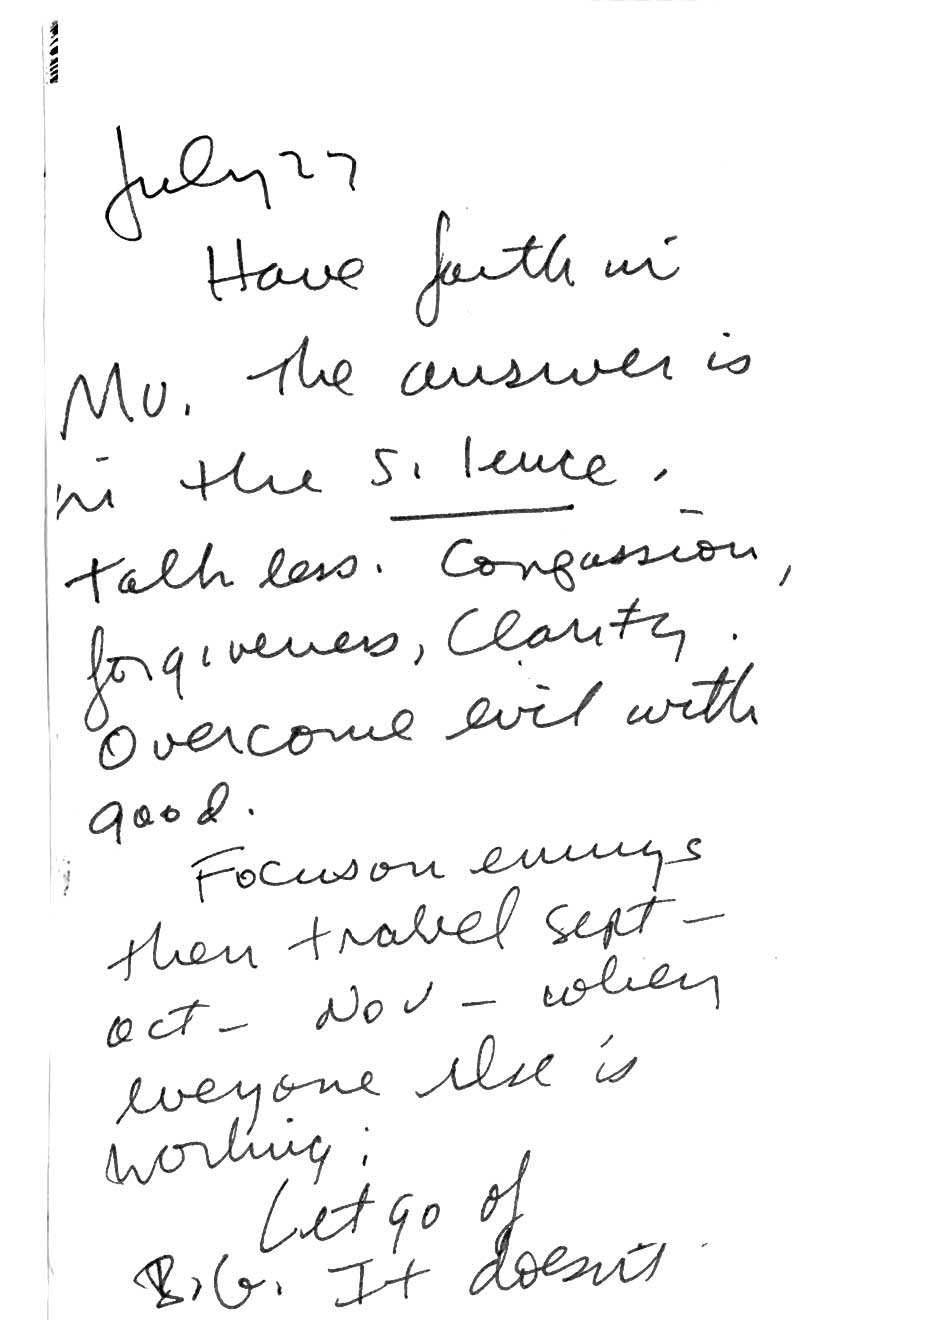 July 27
Have faith in
Mu. The answer is
in the silence.
Talk less. Compassion,
forgiveness, Clarity.
Overcome evil with
good.
Focus on
then travel Sept -
Oct - Nov - when
everyone else is
working.
Let go of
B.G. It doesn't